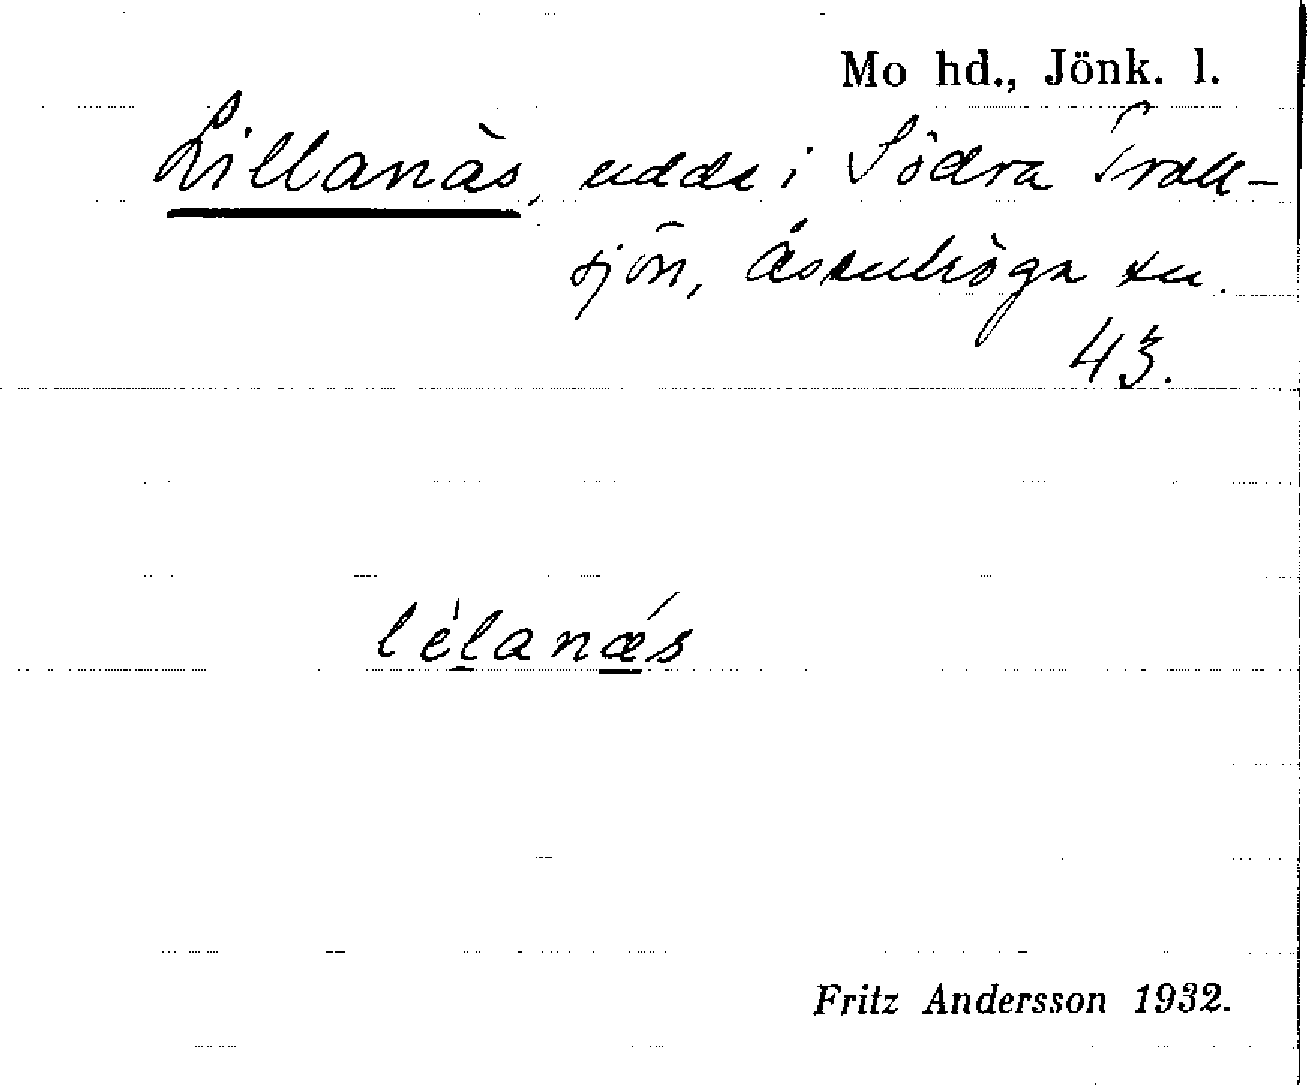 Mo hd., Jönk. l.
Lillanäs, udde i Södra Trall-
sjön, Åsenhöga sn.
43.
lèlanǽs
Fritz Andersson 1932.